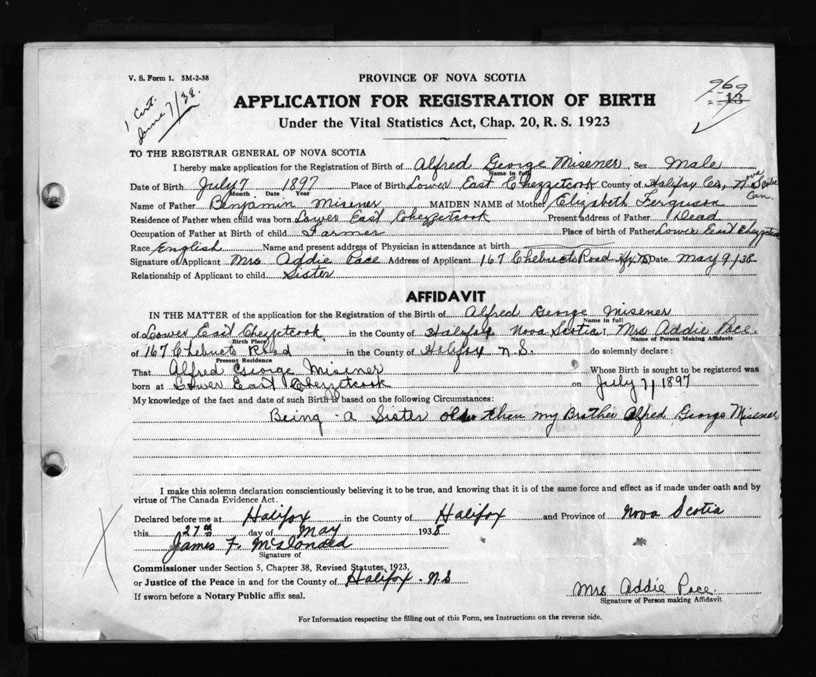 V. S. Form 1. 5M-2-38
PROVINCE OF NOVA SCOTIA
969
13
1 Cert.
June 7/38.
APPLICATION FOR REGISTRATION OF BIRTH
Under the Vital Statistics Act, Chap. 20, R. S. 1923
TO THE REGISTRAR GENERAL OF NOVA SCOTIA
I hereby make application for the Registration of Birth of Alfred George Misener, Sex Male
Name in full
Date of Birth July 7 1897 Place of Birth Lower East Chezzetcook County of Halifax Co, Nova Scotia Can.
Month Date Year
Name of Father Benjamin Misener MAIDEN NAME of Mother Elizabeth Ferguson
Residence of Father when child was born Lower East Chezzetcook Present address of Father Dead
Occupation of Father at Birth of child Farmer Place of birth of Father Lower East Chezzetcook
Race English Name and present address of Physician in attendance at birth
Signature of Applicant Mrs Addie Pace Address of Applicant 167 Chebucto Road Hfx NS Date May 9/38
Relationship of Applicant to child Sister
AFFIDAVIT
IN THE MATTER of the application for the Registration of the Birth of Alfred George Misener
Name in full
of Lower East Chezzetcook in the County of Halifax Nova Scotia I, Mrs Addie Pace.
Birth Place Name of Person Making Affidavit
of 167 Chebucto Road in the County of Halifax N.S. do solemnly declare:
Present Residence
That Alfred George Misener Whose Birth is sought to be registered was
born at Lower East Chezzetcook on July 7/1897
My knowledge of the fact and date of such Birth is based on the following Circumstances:
Being a Sister older then my Brother Alfred George Misener
I make this solemn declaration conscientiously believing it to be true, and knowing that it is of the same force and effect as if made under oath and by
virtue of The Canada Evidence Act.
Declared before me at Halifax in the County of Halifax and Province of Nova Scotia
this 27th day of May 1938
James F. McDonald
Signature of
Commissioner under Section 5, Chapter 38, Revised Statutes, 1923,
or Justice of the Peace in and for the County of Halifax N.S
If sworn before a Notary Public affix seal.
Mrs Addie Pace
Signature of Person making Affidavit
For Information respecting the filling out of this Form, see Instructions on the reverse side.